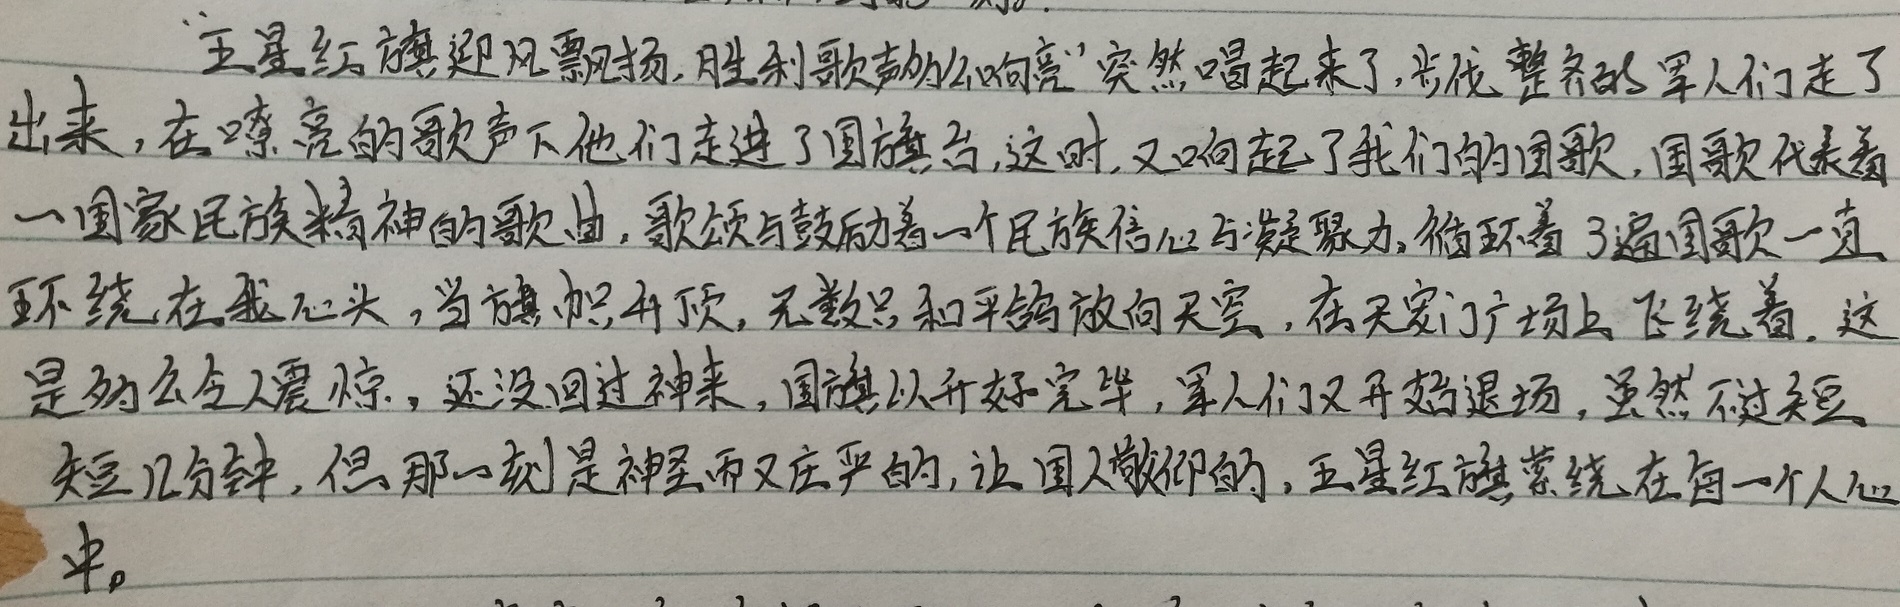 “五星红旗迎风飘扬,胜利歌声多么响亮”突然唱起来了,步伐整齐的军人们走了
出来,在嘹亮的歌声下他们走进了国旗台,这时,又响起了我们的国歌,国歌代表着
一国家民族精神的歌曲,歌颂与鼓励着一个民族信心与凝聚力,循环着3遍国歌一直
环绕在我心头,当旗帜升顶,无数只和平鸽放向天空,在天安门广场上飞绕着.这
是多么令人震惊,还没回过神来,国旗以升好完毕,军人们又开始退场,虽然不过短
短几分钟,但那一刻是神圣而又庄严的,让国人敬仰的,五星红旗萦绕在每一个人心
中。